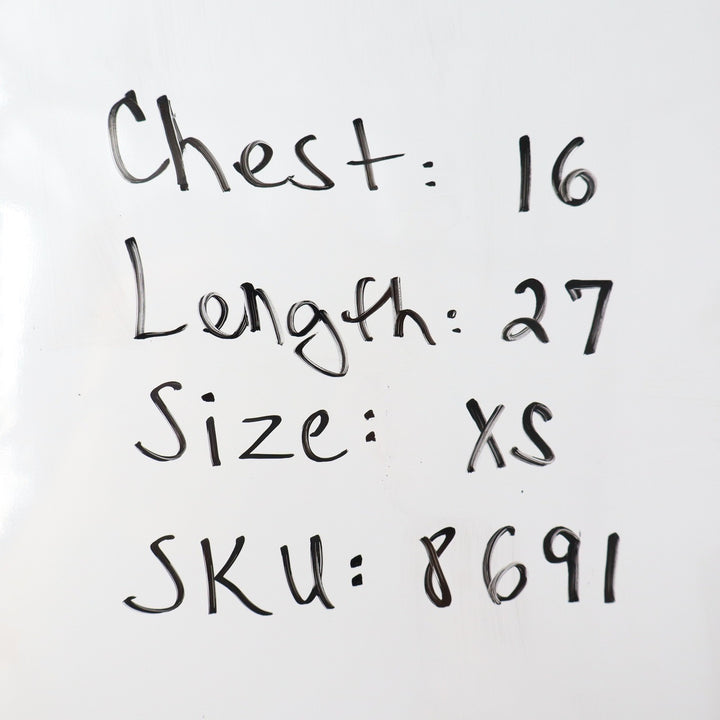 Chest: 16
Length: 27
Size: XS
SKU: 8691